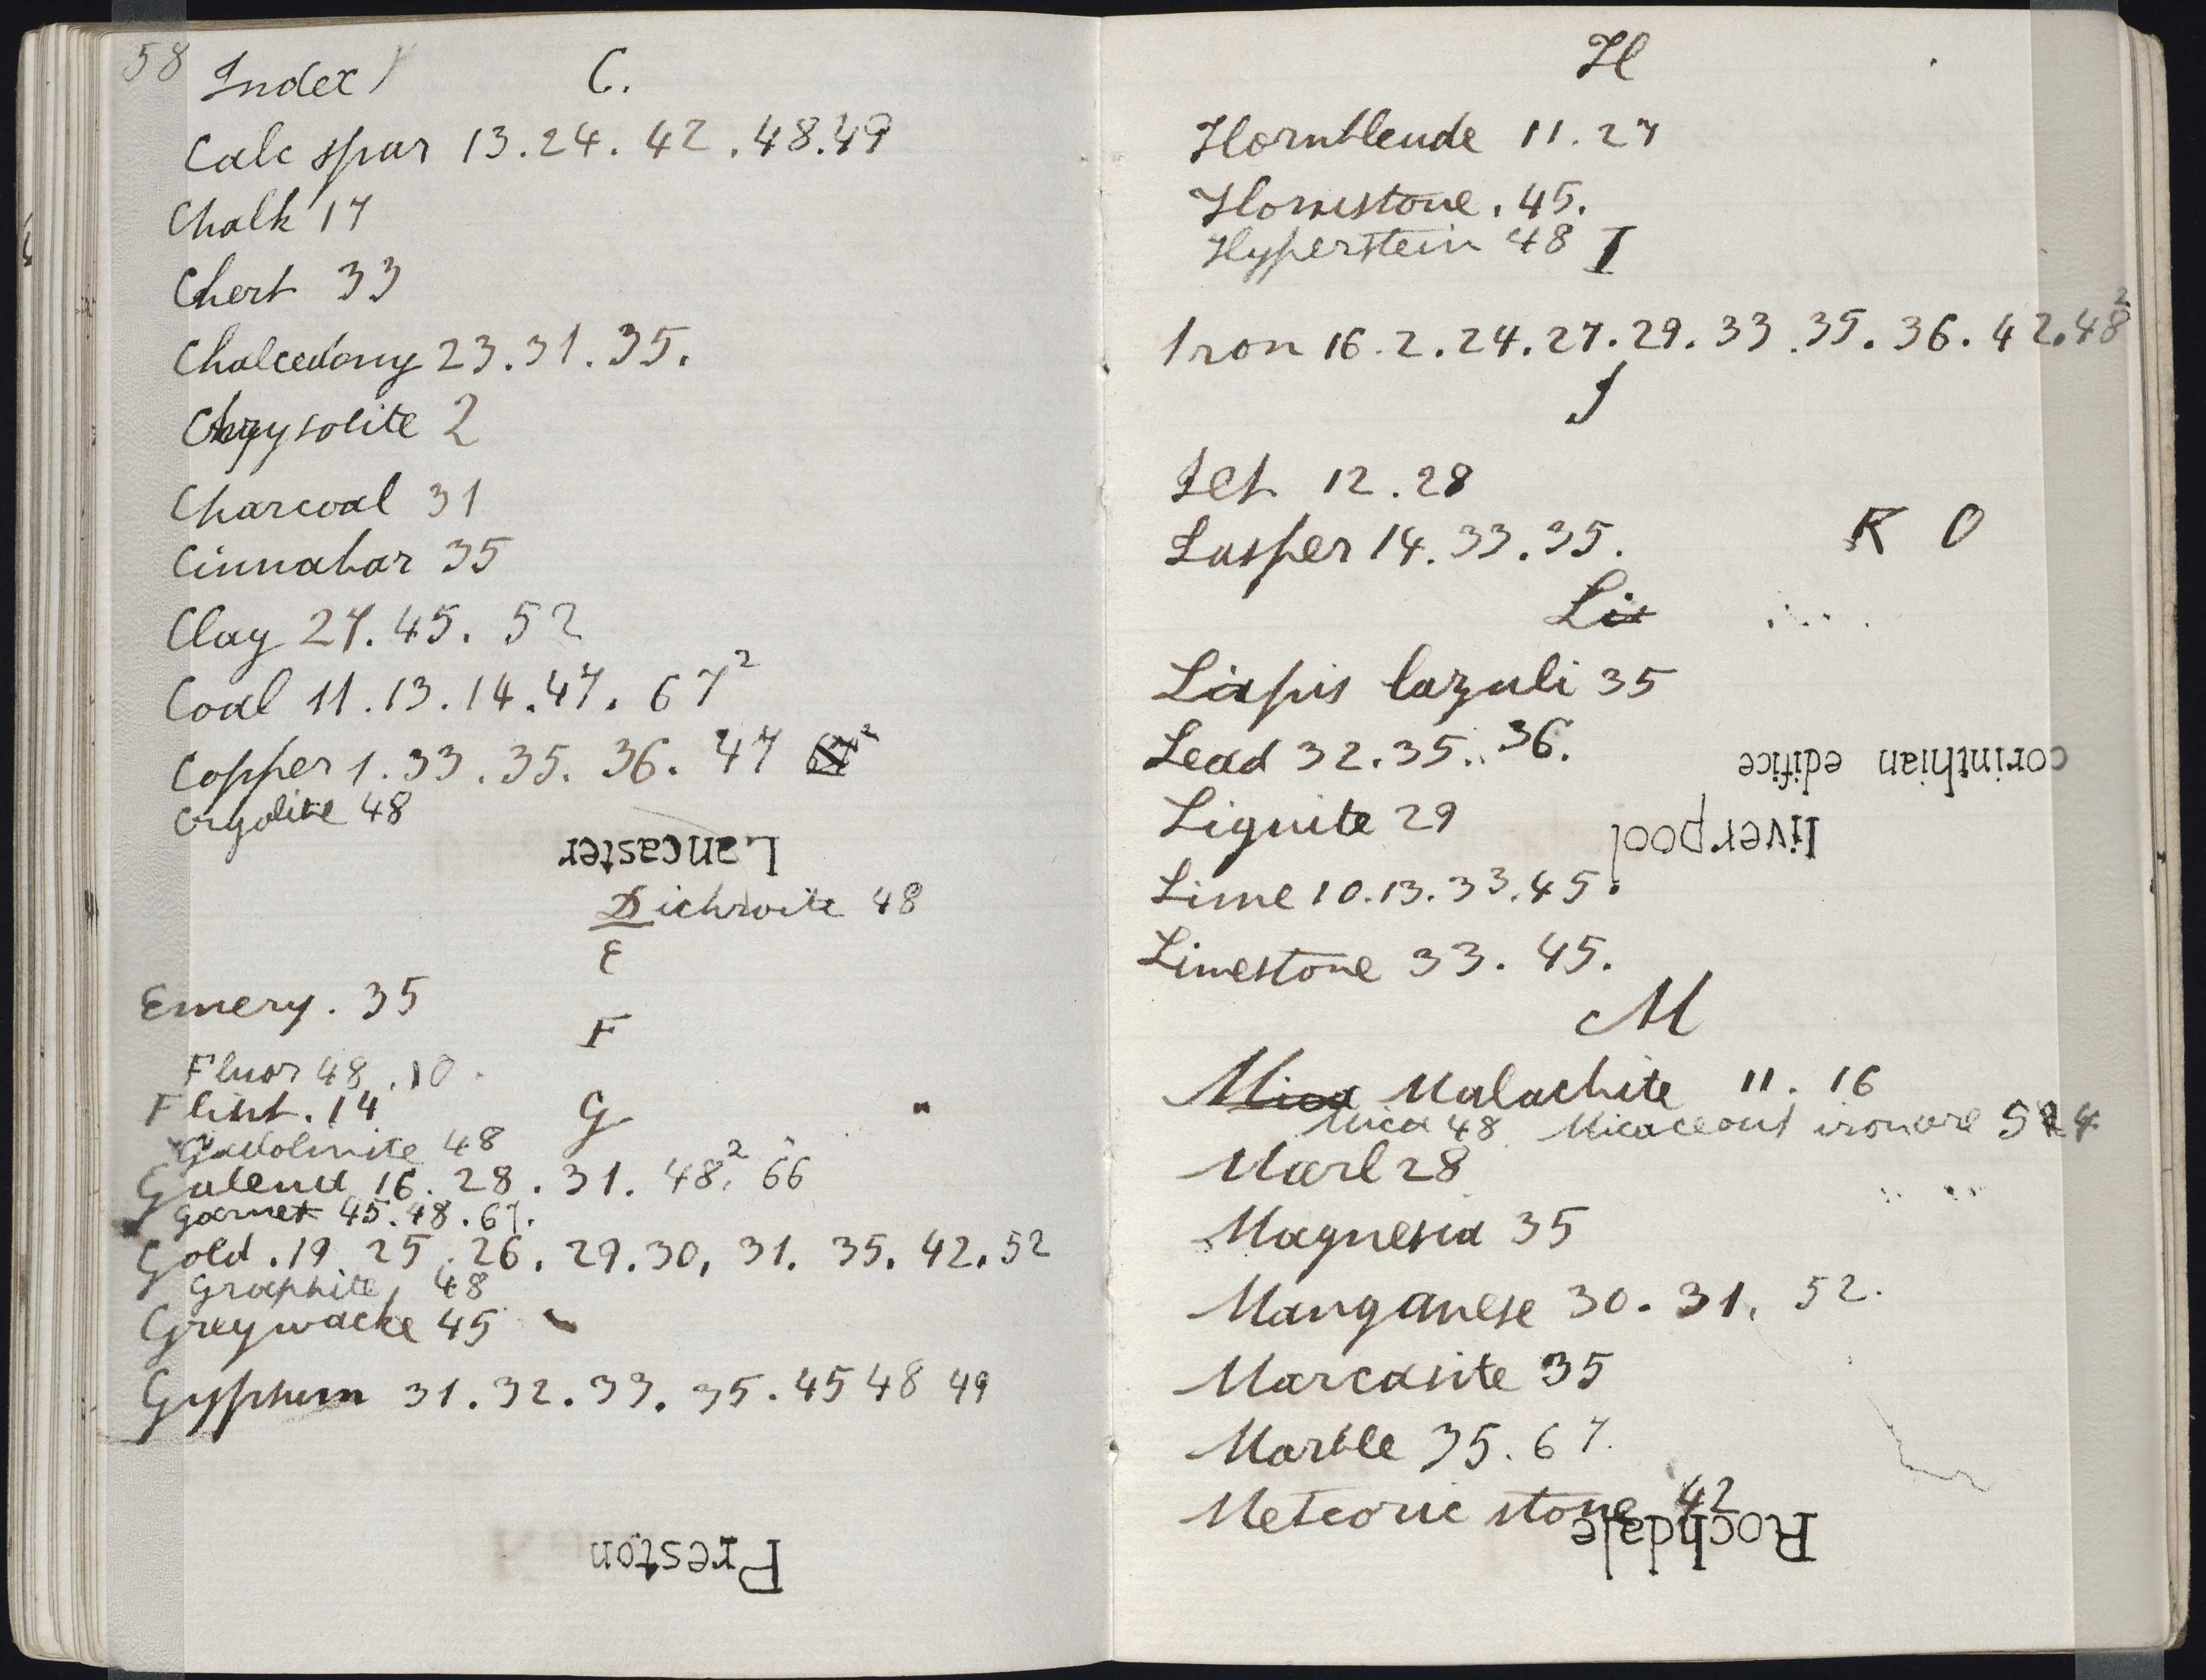 58 Index C.
Calc spar 13.24.42.48.49
Chalk 17
Chert 33
Chalcedony 23.31.35.
Chrysolite 2
Charcoal 31
Cinnabar 35
Clay 27.45.52
Coal 11.13.14.47.67²
Copper 1.33.35.36.47
Cryolite 48
Lancaster
Dichroite 48
E
Emery. 35
F
Fluor 48.10.
Flint. 14
G
Gadolinite 48
Galena 16.28.31.48².66
garnet 45.48.67.
Gold.19 25.26.29.30,31.35.42.52
Graphite, 48
Greywacke 45
Gypsum 31.32.33.35.45 48 49
Preston
H
Hornblende 11.27
Hornstone.45.
Hyperstein 48 I
Iron 16.2.24.27.29.33.35.36.42.48²
J
Jet 12.28
Jasper 14.33.35. K O
Li
Lapis lazuli 35
Lead 32.35..36.
corinthian edifice
Lignite 29
liverpool
Lime 10.13.33.45.
Limestone 33.45.
M
Mica Malachite 11.16
Mica 48 Micaceous iron ore 524
Marl 28
Magnesia 35
Manganese 30.31.52.
Marcasite 35
Marble 35.67.
Meteoric stone 42
Rochdale